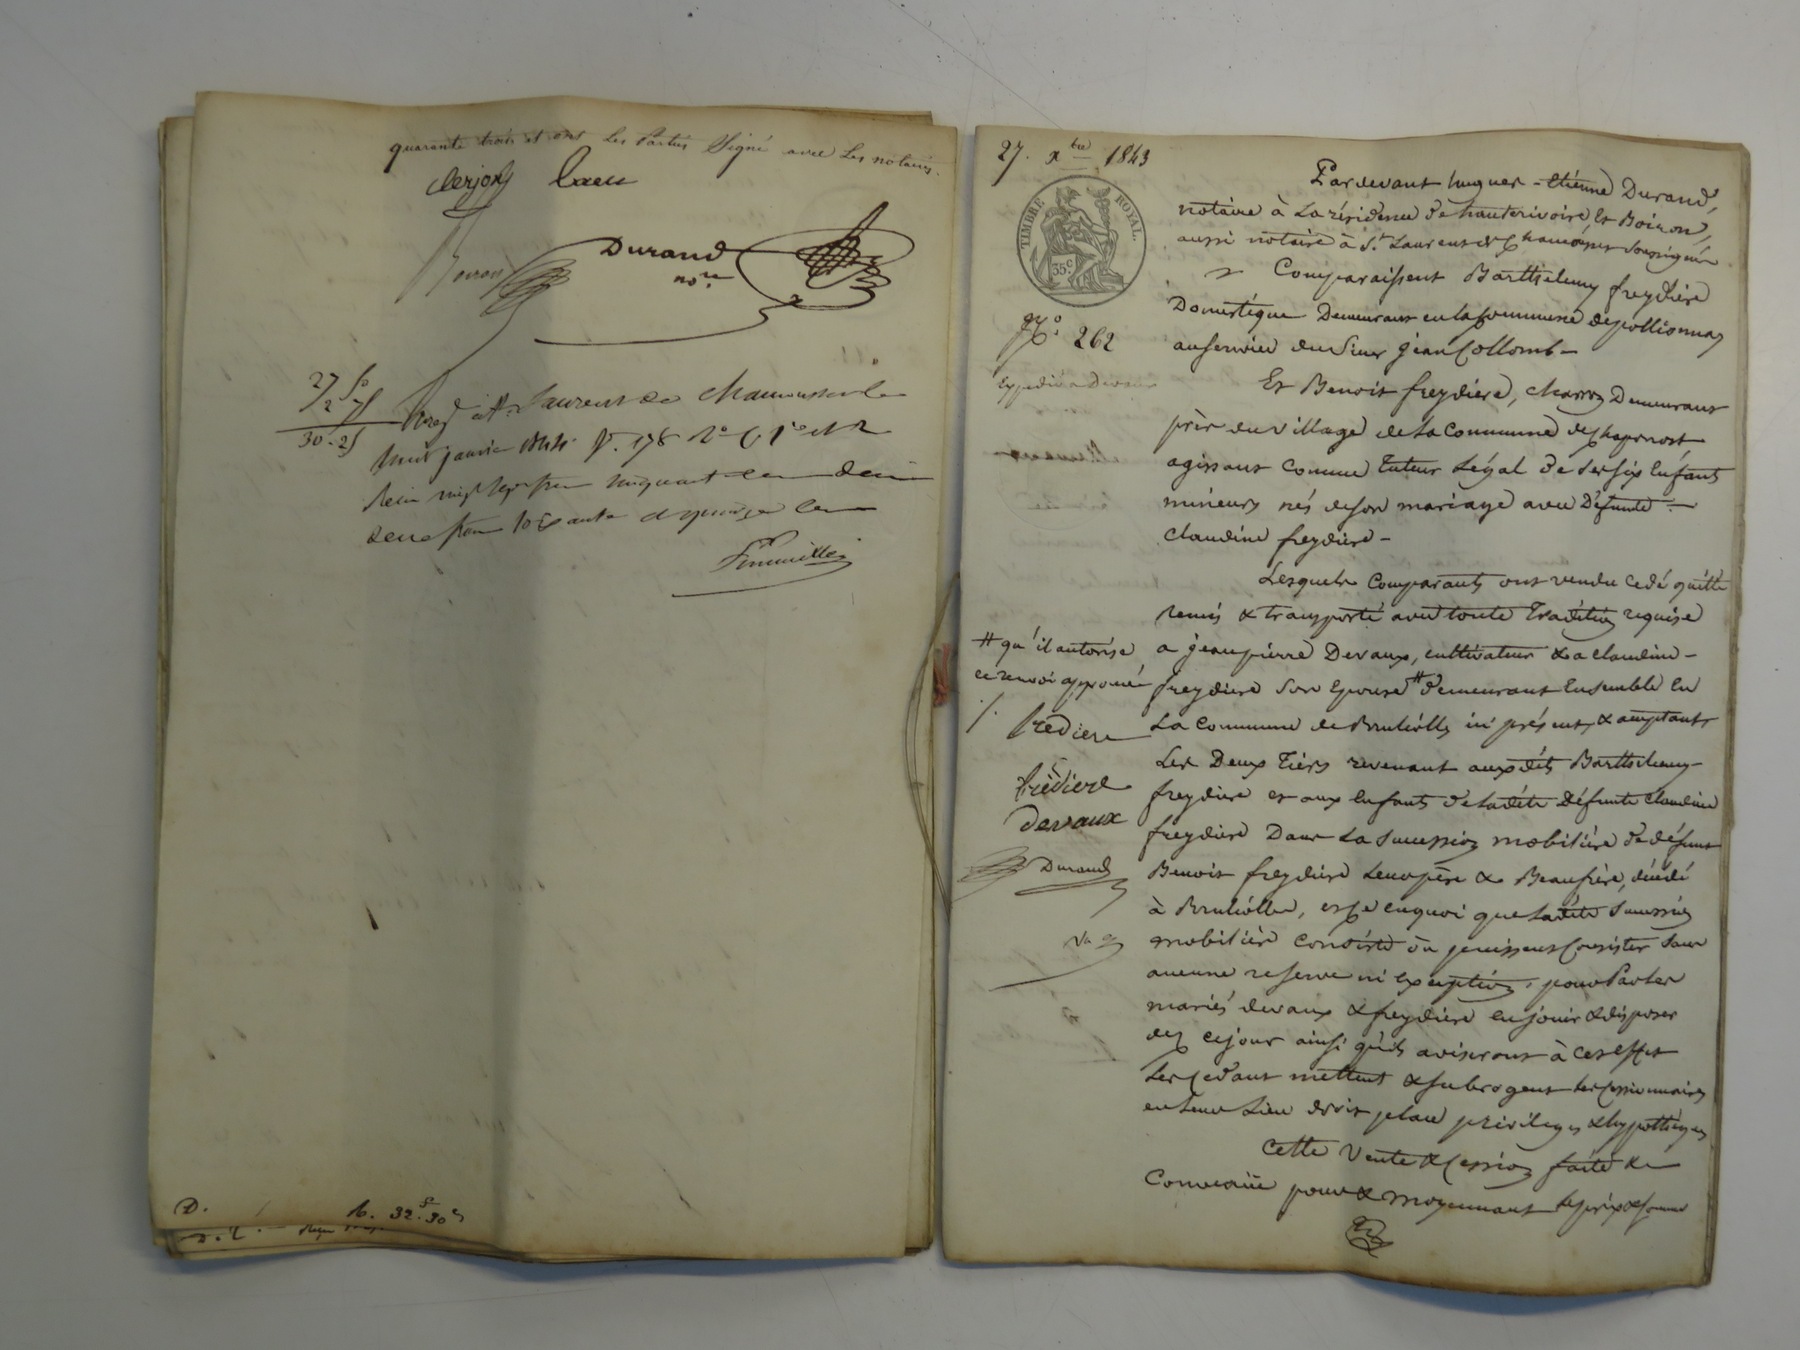 quarante trois et ont les Parties Signé avec Les notaires.
Clerjon
Durand
no.re
27 f
2 7
30 - 25
St. Laurent de Chamousset le
huit janvier f. 178
vingt sept francs cinquante
soixante quinze
D.
32 f. 30 c
27. xbre 1843
TIMBRE ROYAL.
35 c
No. 262
Expédié à Devaux
Pardevant hugues - Etienne Durand,
notaire à La résidence de hauterivoire Et Boiron,
aussi notaire à St. Laurent de Chamousset Soussignés
Comparaissent Barthelemy freydière
Domestique Demeurant en la Commune de pollionnay
au service du Sieur jean Collomb -
Et Benoit freydiere, charron Demeurant
près du village de La Commune de Chaponost
agissant comme tuteur Légal de Ses six Enfants
mineurs nés de son mariage avec Défunte -
Claudine freydiere -
Lesquels Comparants ont vendu cedé quitté
remis & transporté avec toute Tradition requise
a jean pierre Devaux, cultivateur & a claudine -
freydiere Son Epouse # demeurant Ensemble En
La Commune de Brulliolles ici présents & acceptants
Les Deux Tiers revenant auxdits Barthelemy -
freydiere et aux Enfants de Ladite Défunte Claudine
freydiere Dans La Succession mobilière de défunt
Benoit freydiere Leur père & Beaufrère, décédé
à Brulliolles, et ce en quoi que Ladite Succession
mobilière consiste ou puissent Consister Sans
aucune reserve ni Exception, pour Par les
mariés devaux & freydiere en jouir & disposer
dez ce jour ainsi qu'ils aviseront à cet effet
Les Cedants mettent & subrogent les Cessionnaires
en Leur Lieu droit place privileges & hypothèques
Cette Vente & Cession faite &
Convenüe pour & moyennant le prix & somme
# qu'il autorise
ce renvoi approuvé
frediere
frediere
devaux
Durand